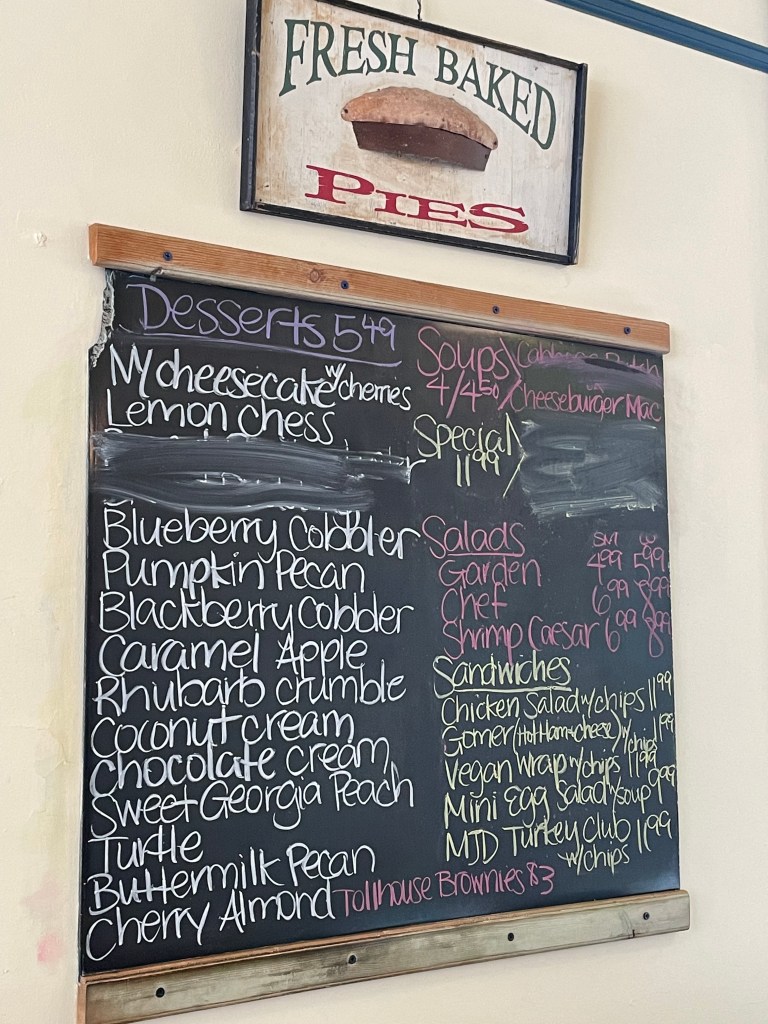 FRESH BAKED
PIES
Desserts 5 49
NY cheesecake w/ cherries
Lemon chess
Blueberry Cobbler
Pumpkin Pecan
Blackberry Cobbler
Caramel Apple
Rhubarb crumble
Coconut cream
Chocolate cream
Sweet Georgia Peach
Turtle
Buttermilk Pecan
Cherry Almond
Tollhouse Brownies $3
Soups
4/4 50 Cheeseburger Mac
Special
11 99
Salads
Garden 4 99 5 99
Chef 6 99 8 99
Shrimp Caesar 6 99 8 99
Sandwiches
Chicken Salad w/chips 11 99
Gomer (Hot Ham + cheese) w/chips 11 99
Vegan Wrap w/chips 11 99
Mini Egg Salad w/soup 9 99
MJD Turkey Club 11 99
w/chips